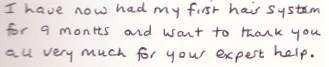 I have now had my first hair system
for 9 months and want to thank you
all very much for your expert help.